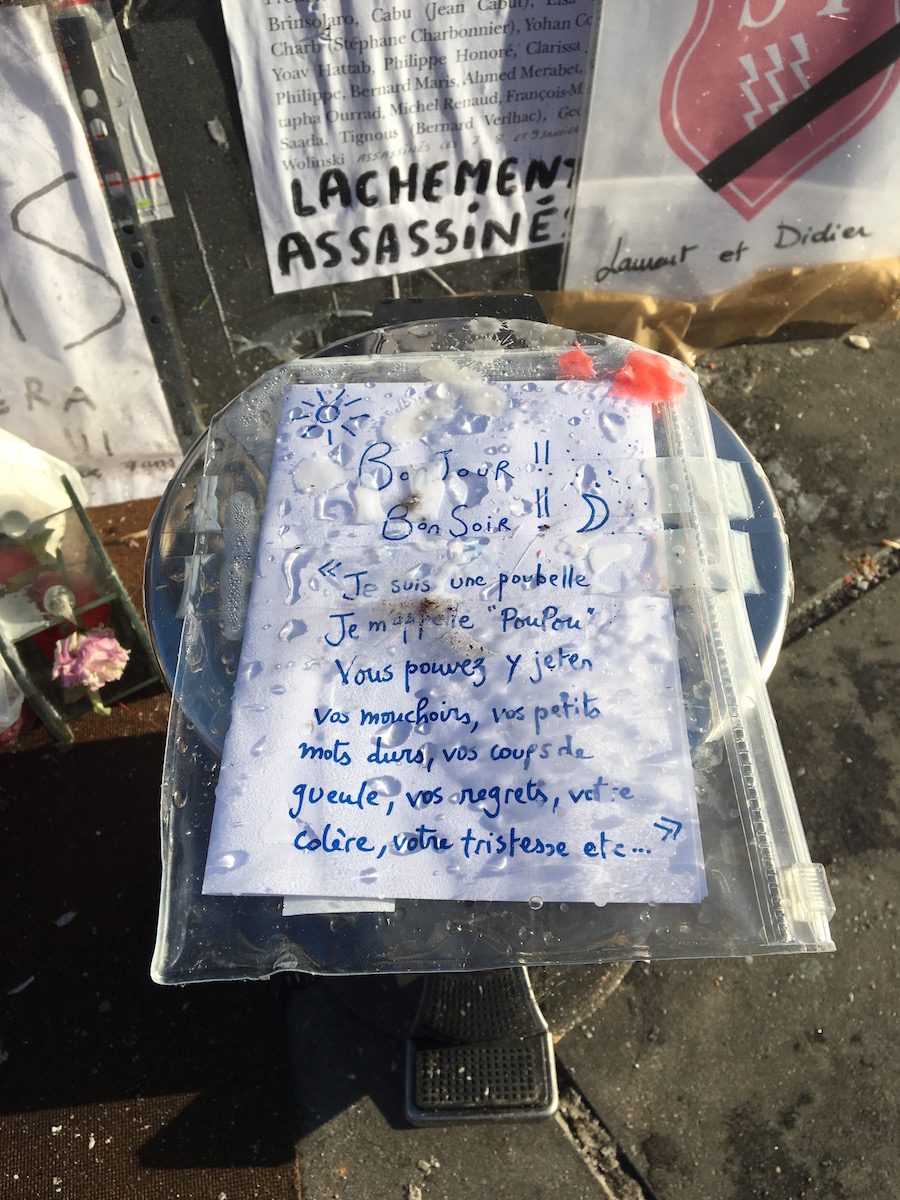 Brinsolaro, Cabu (Jean Cabut), Elsa
Charb (Stéphane Charbonnier), Yohan
Yoav Hattab, Philippe Honoré, Clarissa
Philippe, Bernard Maris, Ahmed Merabet,
tapha Ourrad, Michel Renaud, François-M
Saada, Tignous (Bernard Verlhac), Geo
Wolinski ASSASSINÉS LES 7. 8. ET 9 JANVIER
LACHEMENT
ASSASSINÉS
Laurent et Didier
ERA
BONJOUR !!
BONSOIR !!
« Je suis une poubelle
Je m'appelle "PouPou"
Vous pouvez y jeter
vos mouchoirs, vos petits
mots durs, vos coups de
gueule, vos regrets, votre
colère, votre tristesse etc... »